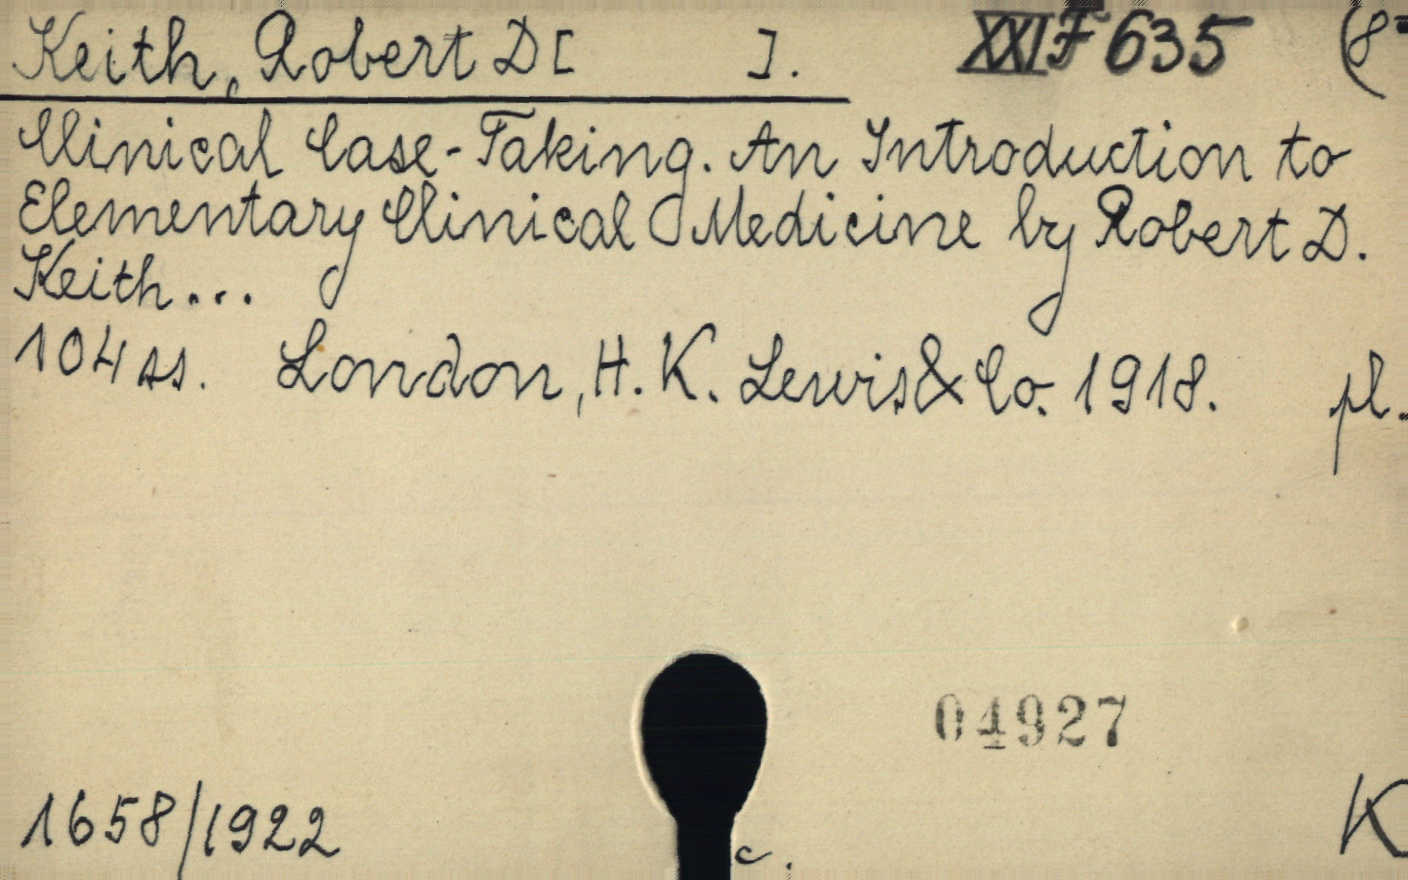 Keith, Robert D[ ]. XXI F 635 (8°
Clinical Case-Taking. An Introduction to
Elementary Clinical Medicine by Robert D.
Keith...
104 ss. London, H. K. Lewis & Co. 1918. pl.
04927
1658/1922 c. K